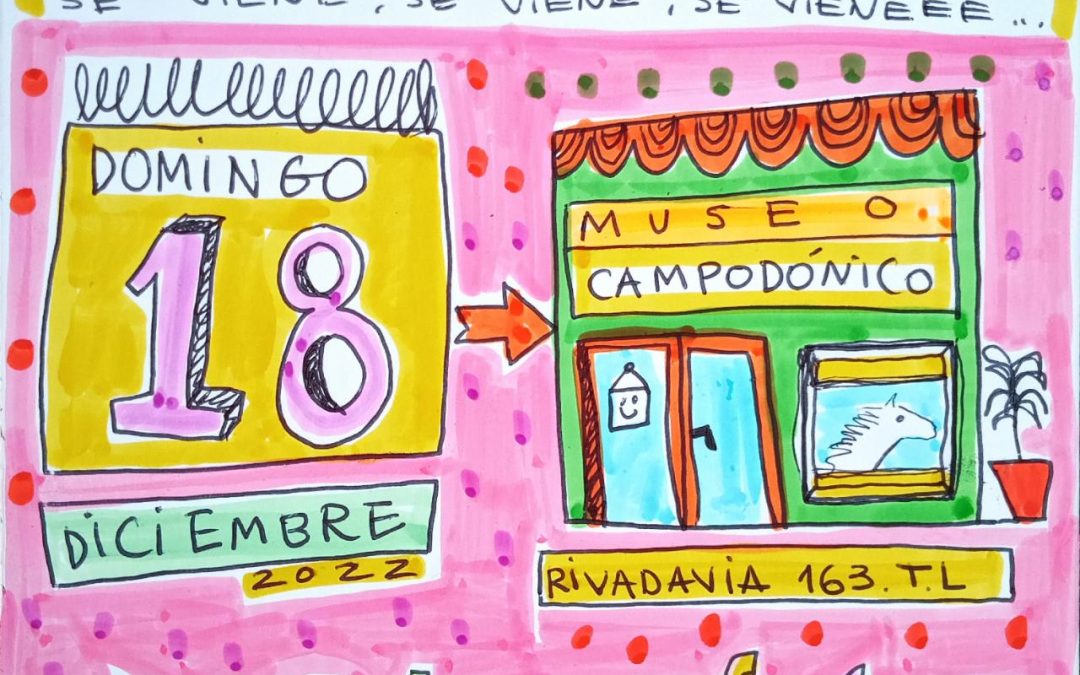 SE VIENE, SE VIENE, SE VIENEEE...
DOMINGO
18
DICIEMBRE
2022
MUSEO
CAMPODÓNICO
RIVADAVIA 163. T.L